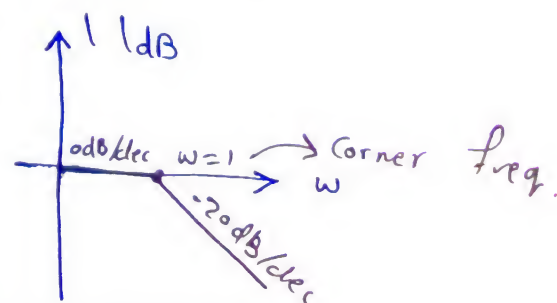 | |dB
0dB/dec w=1 → Corner freq.
w
-20dB/dec